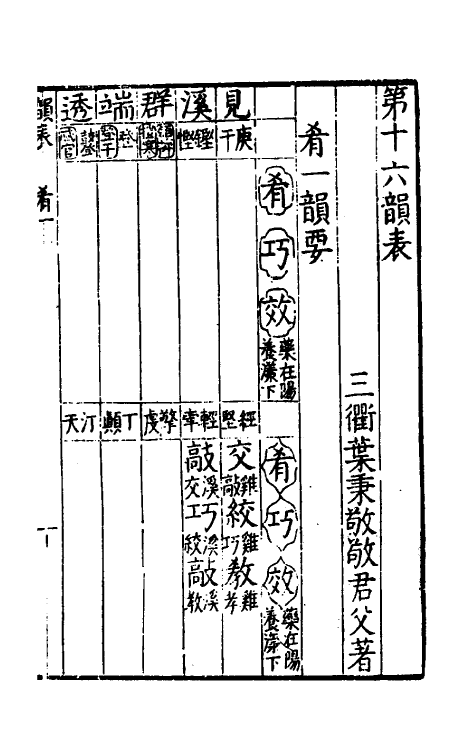 第十六韻表
三衢葉秉敬敬君父著
肴一韻要
肴 巧 效 藥在陽養漾下 肴 巧 效 藥在陽養漾下
見 庚干 經堅 交雞敲絞雞巧教雞孝
溪 鏗慳 輕牽 敲溪交巧溪絞敲溪教
群 擎虔
端 登 丁顛
透 汀天
韻表 肴一